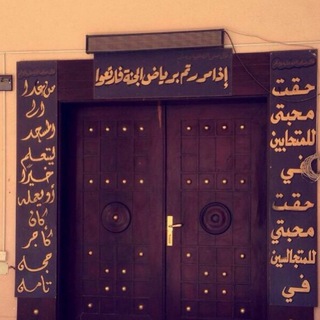 إذا مررتم برياض الجنة فارتعوا
حقت
محبتي
للمتحابين
في
حقت
محبتي
للمتجالسين
في
من غدا
الى
المسجد
ليتعلم
خيرا
أو يعلمه
كان
كأجر
حجة
تامة